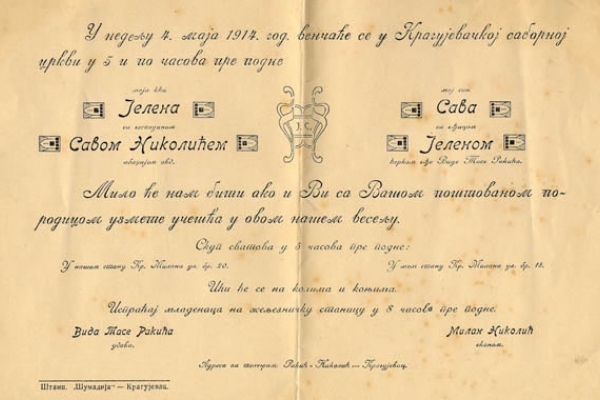 У недељу 4. маја 1914. год. венчаће се у Крагујевачкој саборној
цркви у 5 и по часова пре подне
моја кћи
Јелена
са господином
Савом Николићем
J. C.
мој син
Сава
са г-ђицом
Јеленом
ћерком г-ђе Виде Тасе Ракића.
Мило ће нам бити ако и Ви са Вашом поштованом по-
родицом узмете учешћа у овом нашем весељу.
Скуп сватова у 5 часова пре подне:
У нашем стану Кр. Милана ул. бр. 20.
У мом стану Кр. Милана ул. бр. 18.
Ићи ће се на колима и коњима.
Испраћај младенаца на железничку станицу у 8 часова пре подне.
Вида Тасе Ракића
удова.
Милан Николић
економ.
Адреса за телеграм Ракић - Николић — Крагујевац.
Штамп. „Шумадија“ — Крагујевац.